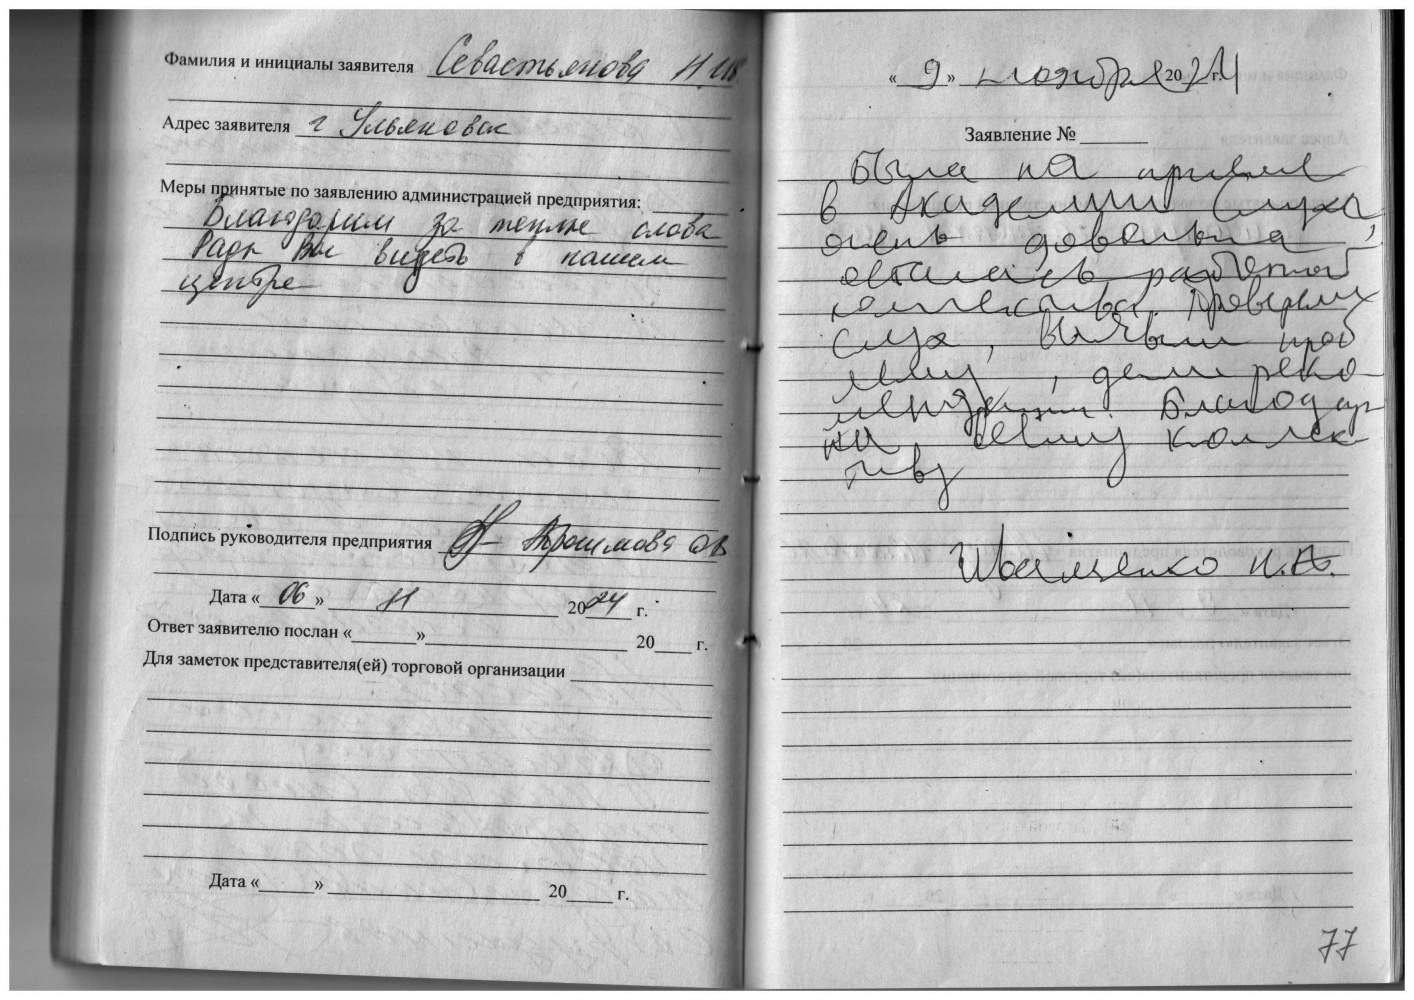 Фамилия и инициалы заявителя Севастьянова Н.И.
Адрес заявителя г Ульяновск
Меры принятые по заявлению администрацией предприятия:
Благодарим за теплые слова
Рады Вас видеть в нашем
центре
Подпись руководителя предприятия
Дата «06» 11 2024 г.
Ответ заявителю послан «» 20 г.
Для заметок представителя(ей) торговой организации
Дата «» 20 г.
«9» ноября 2024 г.
Заявление №
Была на приеме
в Академии Слуха,
очень довольна,
осталась работой
коллектива. Проверили
слух, выявили проб
лему, дали реко
мендации. Благодар
на всему коллек
тиву
Ивашенко Н.А.
77